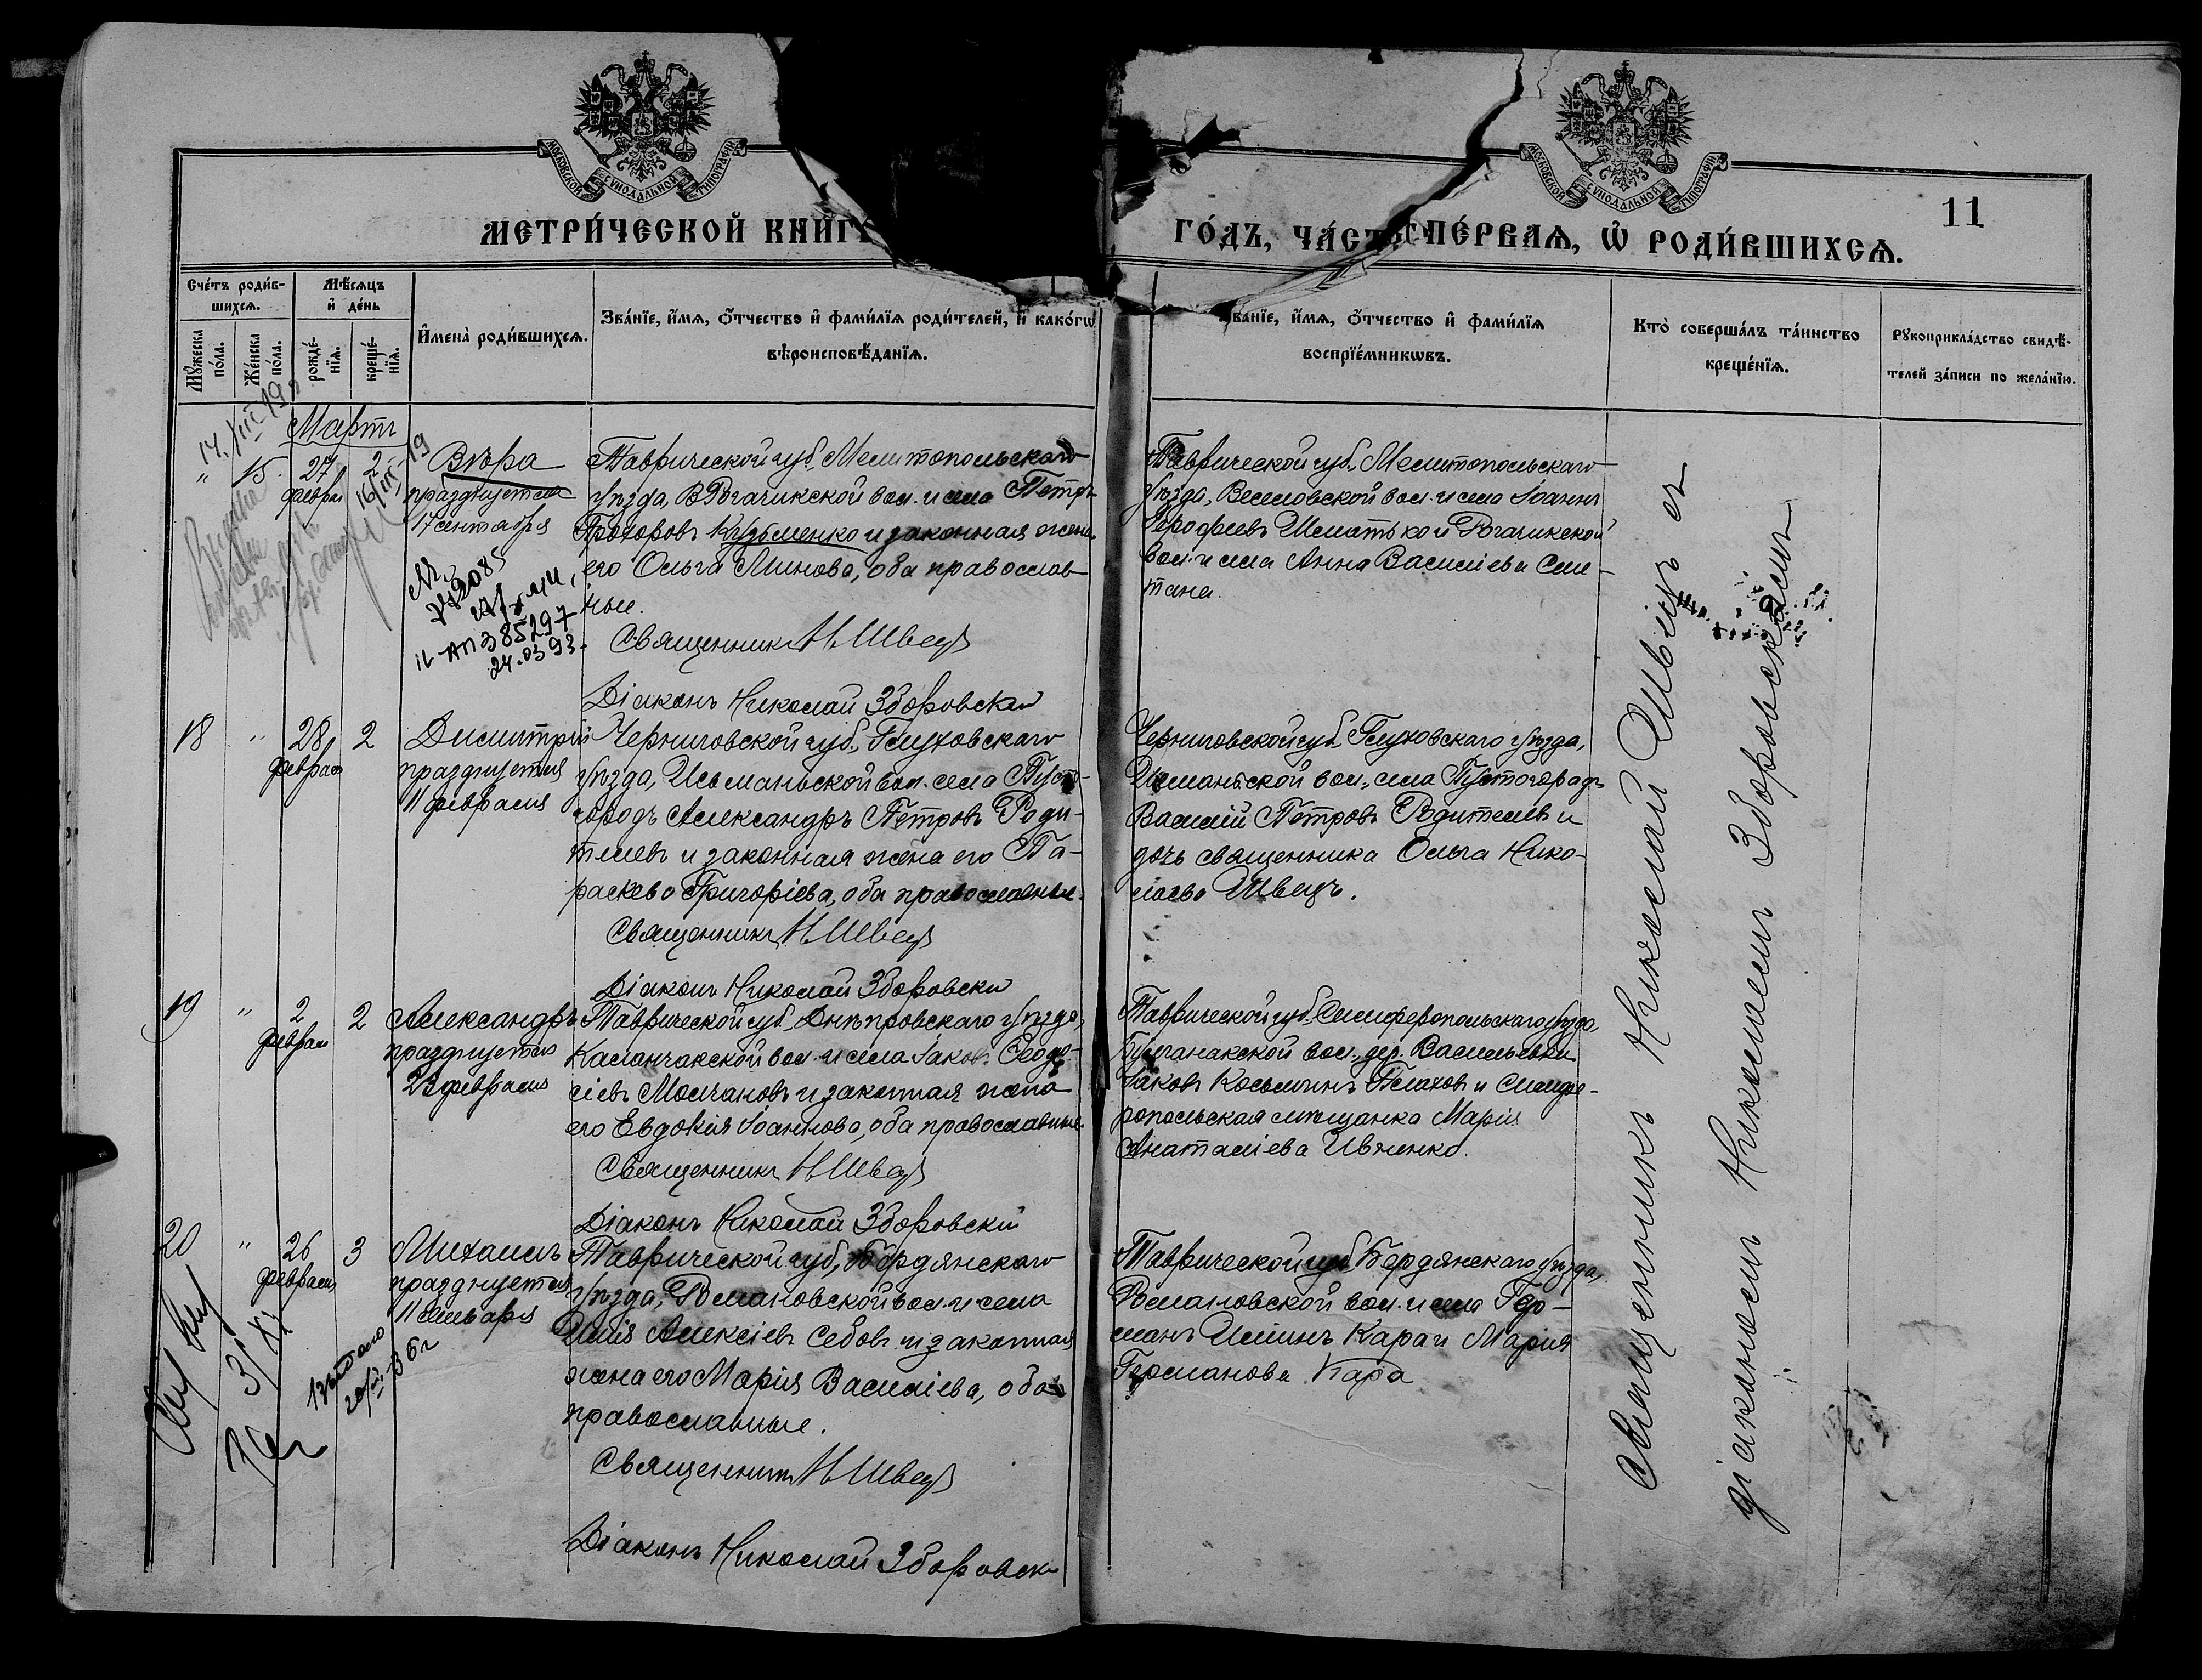 МОСКОВСКОЙ СѴНОДАЛЬНОЙ ТИПОГРАФІИ
МОСКОВСКОЙ СѴНОДАЛЬНОЙ ТИПОГРАФІИ
11
МЕТРИ́ЧЕСКОЙ КНИ́Г
ГО́ДЪ, ЧА́СТЬ ПЕ́РВАѦ, Ѽ РОДИ́ВШИХСѦ.
Сче́тъ роди́в-
шихсѧ.
Мꙋ́жеска по́ла.
Же́нска по́ла.
Мѣ́сѧцъ
и҆ де́нь
рожде́-
нїѧ.
креще́-
нїѧ.
И҆мена̀ роди́вшихсѧ.
Зва́нїе, и҆́мѧ, ѻ҆́тчество и҆ фами́лїѧ роди́телей, и҆ како́гѡ
вѣроисповѣ́данїѧ.
ва́нїе, и҆́мѧ, ѻ҆́тчество и҆ фами́лїѧ
воспрїе́мникѡвъ.
Кто̀ соверша́лъ та́инство
креще́нїѧ.
Рꙋкоприкла́дство свидѣ́-
телей за́писи по жела́нїю.
Мартъ
" 15 27 феврал 2
Вѣра
празднуется
17 сентября
Таврической губ. Мелитопольскаго
уѣзда, В Рогачикской вол. и села Петръ
Прохоровъ Кузьменко и законная жена
его Ольга Минова, оба православ-
ные.
Священникъ Н Швецъ
Діаконъ Николай Зборовскій
Таврической губ. Мелитопольскаго
уѣзда, Веселовской вол. и села Іоаннъ
Ерофеевъ Шематько и Рогачикской
вол. и села Анна Василіева Сме-
тана.
385297
24.03.93.
18 " 28 феврал 2
Димитрій
празднуется
11 февраля
Черниговской губ. Глуховскаго
уѣзда, Эсманьской вол. села Пусто-
городъ Александръ Петровъ Роди-
телевъ и законная жена его Па-
раскева Григоріева, оба православные.
Священникъ Н Швецъ
Діаконъ Николай Зборовскій
Черниговской губ. Глуховскаго уѣзда,
Эсманьской вол. села Пустогорадъ
Василій Петровъ Родителевъ и
дочь священника Ольга Нико-
лаева Швецъ.
19 " 2 феврал 2
Александръ
празднуется
23 февраля
Таврической губ. Днѣпровскаго уѣзда,
Каланчакской вол. и села Іаковъ Ѳеодо-
сіевъ Молчановъ и законная жена
его Евдокія Іоаннова, оба православные.
Священникъ Н Швецъ
Діаконъ Николай Зборовскій
Таврической губ. Симферопольскаго уѣзда,
Булганакской вол. дер. Васильевки
Іаковъ Косьминъ Плахов и Симфе-
ропольская мѣщанка Марія
Анатоліева Ивненко.
20 " 26 феврал 3
Михаилъ
празднуется
11 января
Таврической губ. Бердянскаго
уѣзда, Романовской вол. и села
Илія Алексіевъ Седовъ и законная
жена его Марія Василіева, оба
православные.
Священникъ Н Швецъ
Діаконъ Николай Зборовскій
Таврической губ. Бердянскаго уѣзда,
Романовской вол. и села Гер-
манъ Илиинъ Кара и Марія
Германова Кара
Священникъ Николай Швецъ съ
діакономъ Николаемъ Зборовскимъ